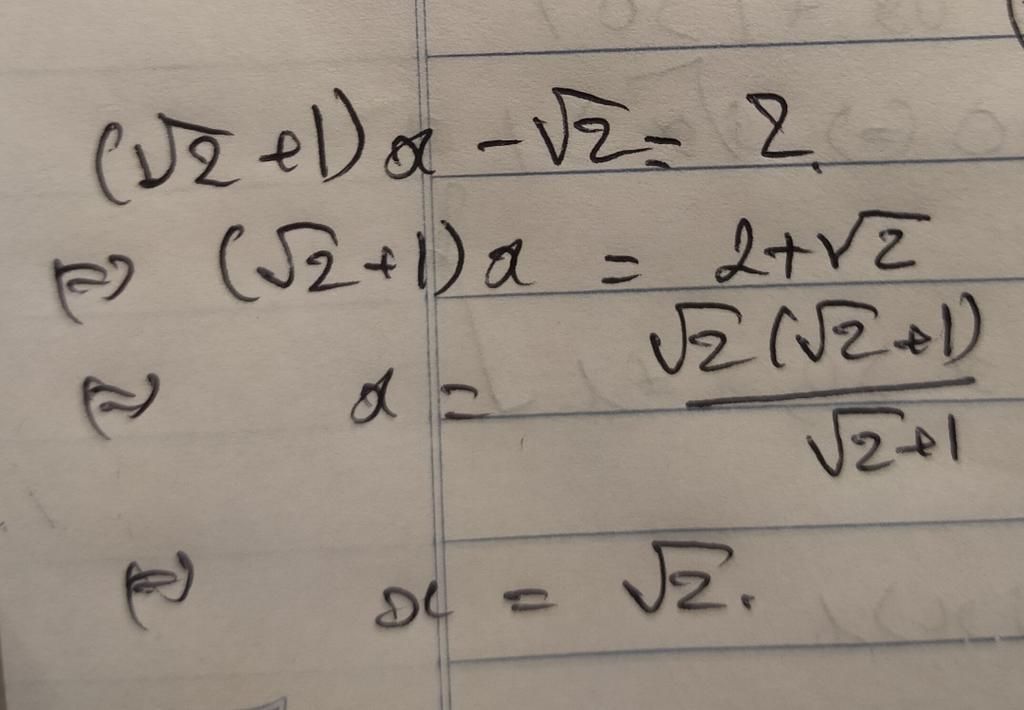 (√2+1)x - √2 = 2.
⇔ (√2+1)x = 2+√2
⇔ x = √2(√2+1) / √2+1
⇔ x = √2.